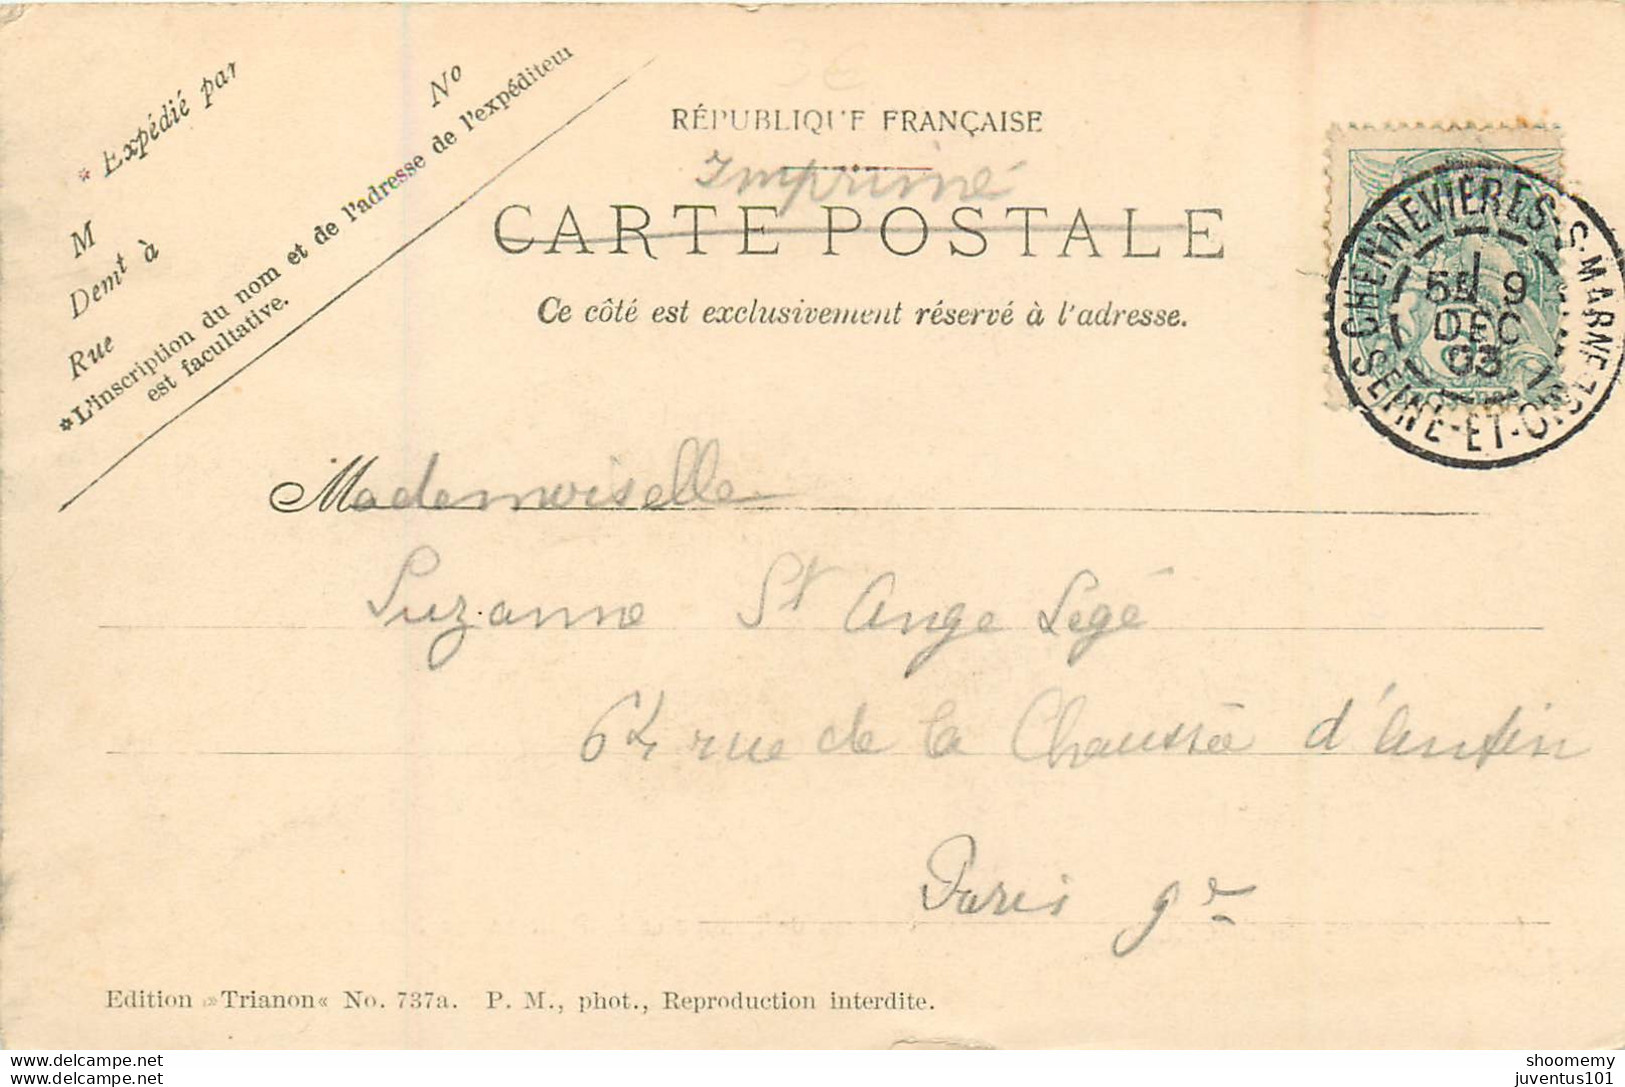 * Expédié par
M No
Demt à
Rue
*L'inscription du nom et de l'adresse de l'expéditeur
est facultative.
RÉPUBLIQUE FRANÇAISE
Imprimé
CARTE POSTALE
Ce côté est exclusivement réservé à l'adresse.
CHENNEVIERES-S-MARNE
9
DEC
03
SEINE-ET-OISE
Mademoiselle
Suzanne St Ange Légé
64 rue de la Chaussée d'Antin
Paris 9e
Edition »Trianon« No. 737a. P. M., phot., Reproduction interdite.
delcampe.net
shoomemy
delcampe.net
juventus101